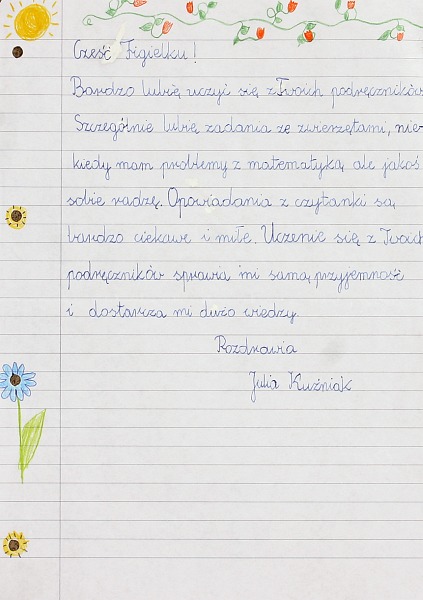 Cześć Figielku!
Bardzo lubię uczyć się z Twoich podręczników
Szczególnie lubię zadania ze zwierzętami, nie-
kiedy mam problemy z matematyką ale jakoś
sobie radzę. Opowiadania z czytanki są
bardzo ciekawe i miłe. Uczenie się z Twoich
podręczników sprawia mi samą przyjemność
i dostarcza mi dużo wiedzy.
Pozdrawia
Julia Kuźniak